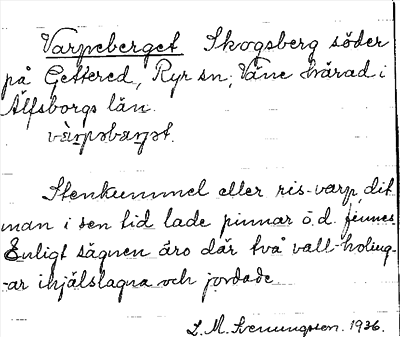 Varpeberget Skogsberg söder
på Gettered, Ryr sn, Väne härad i
Älfsborgs län.
Stenkummel eller ris-varp, dit
man i sen tid lade pinnar o.d. finnes.
Enligt sägnen äro där två vall-holing-
-ar ihjälslagna och jordade.
L. M. Svenungsson. 1936.